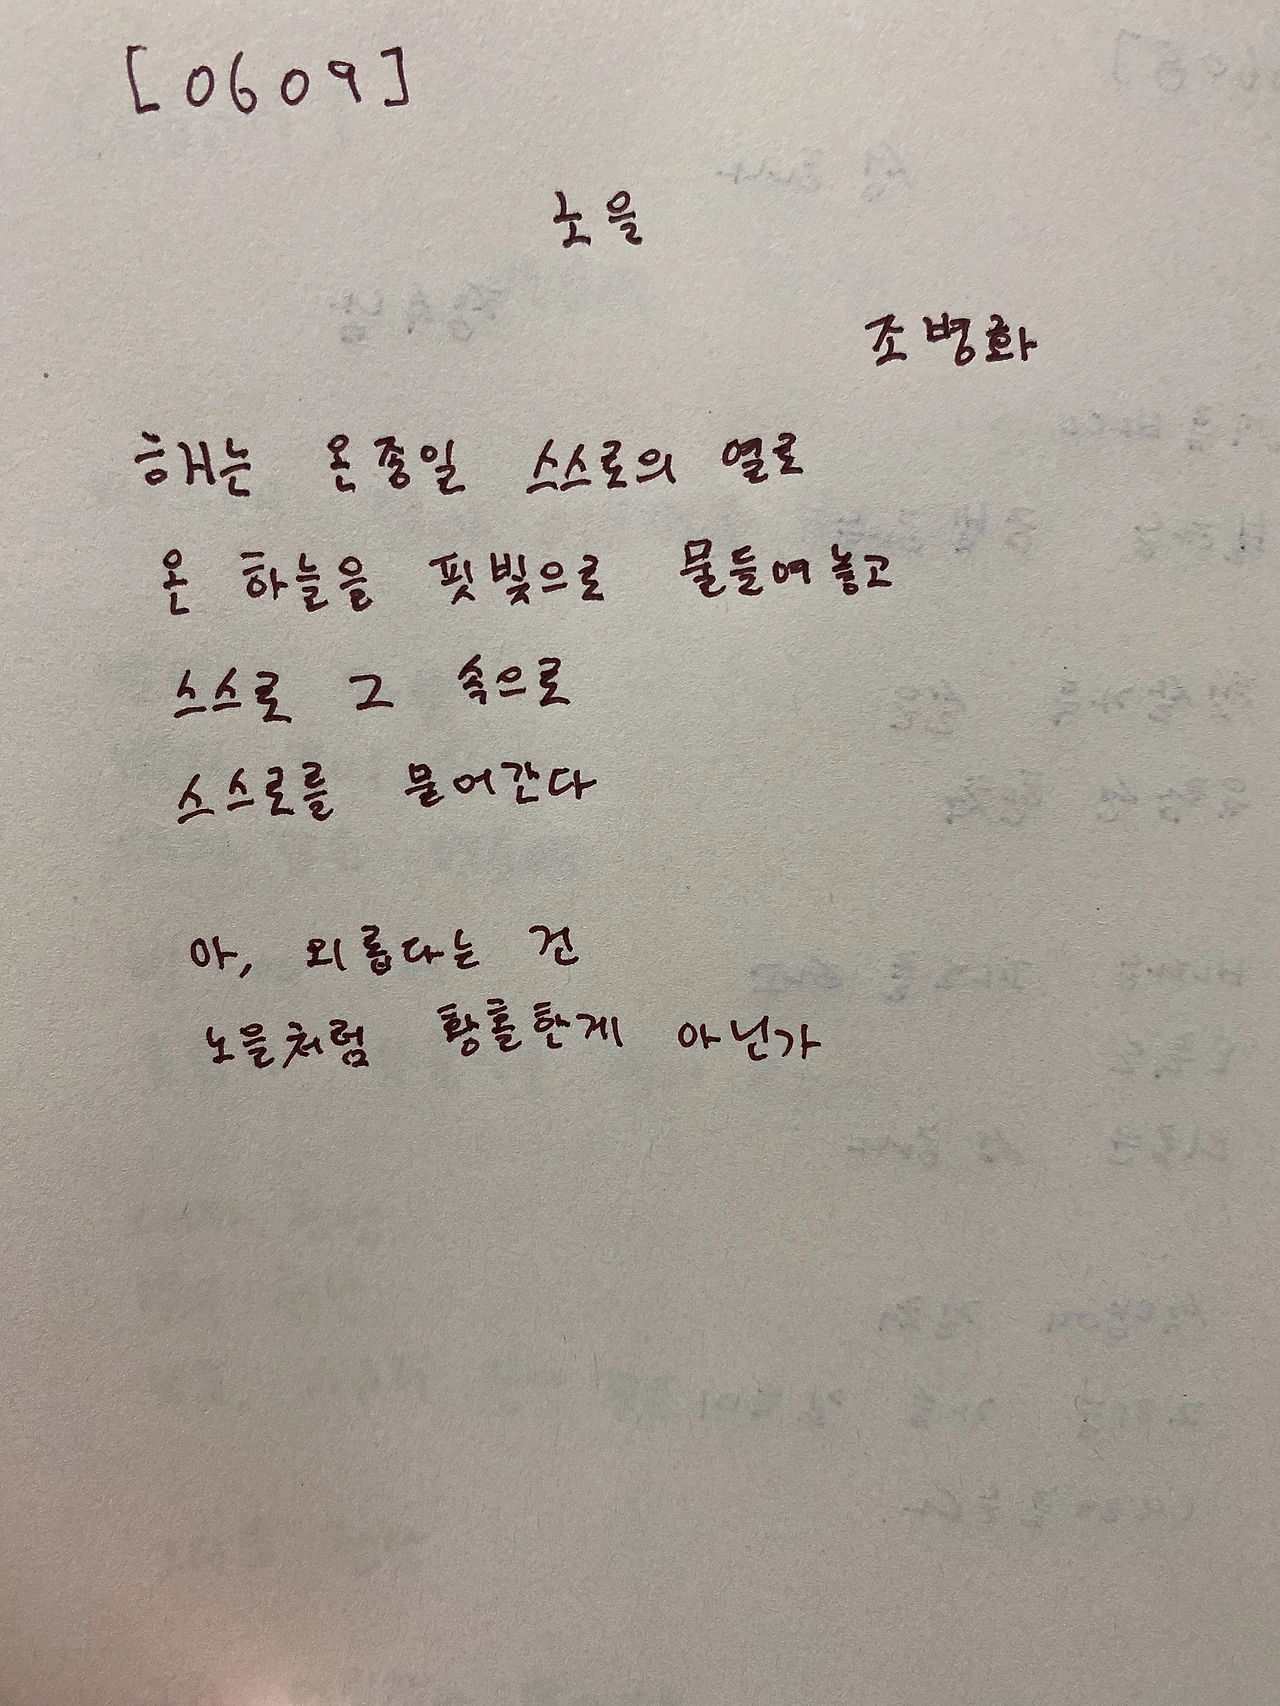 [0609]
노을
조병화
해는 온종일 스스로의 열로
온 하늘을 핏빛으로 물들여놓고
스스로 그 속으로
스스로를 물어간다
아, 외롭다는 건
노을처럼 황홀한게 아닌가